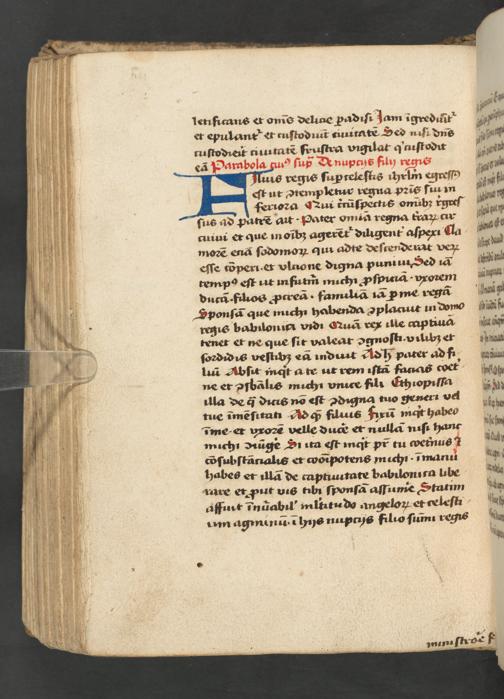 letificans et om̄s delicie ꝑadisi Jam īgrediūt᷑
et epulant᷑ et custodiūt ciuitatē Sed nisi dn̄s
custodierit ciuitatē frustra vigilat q̓ custodit
eā Parabola eiꝰ suꝑ De nupcijs filij regis
Filius regis suꝑcelestis ihrlm̄ egressꝰ
est ut ꝯtempletur regna pr̄is sui in
feriora Cui circūspectis om̄ibꝫ īgres
sus ad patrē ait · Pater omnia regna terraꝝ cir
cuiui et que in oībꝫ agerēt᷑ diligent᷑ aspexi Cla
morē eciā sodomoꝝ qui ad te descenderat veꝝ
esse cōperi · et vlcione digna puniui Sed iā
tempꝰ est ut in futuꝝ michi ꝓspiciā · vxorem
ducā · filios ꝓcreā · familiā iā ꝑ me regā
Sponsā que michi habenda ꝯplacuit in domo
regis babilonica vidi Quam rex ille captiuā
tenet et ne que sit valeat ꝯgnosci · vilibꝫ et
sordidis vestibꝫ eā induit Ad h̄ pater ad fi
liū Absit inq̓t a te ut rem istā facias coet᷑
ne et ꝯsb̄alis michi vnice fili Ethiopissa
illa de q̄ dicis nō est ꝯdigna tuo generi vel
tue īmēsitati · Ad q̄ filius Fixū inq̓t habeo
ī me · et vxorē velle ducē et nullā nisi hanc
michi ꝯiūgē Si ita est inq̓t pr̄ tu coet̄nus ⁊
cōsubstācialis et coōīpotens michi · ī manu
habes et illā de captiuitate babilonica libe
rare et put vis tibi sponsā assumē Statim
affuit īnuābil᷑ ml̓titudo angeloꝝ et celesti
um agminū · ī hijs nupcijs filio sūmi regis
ministrōē